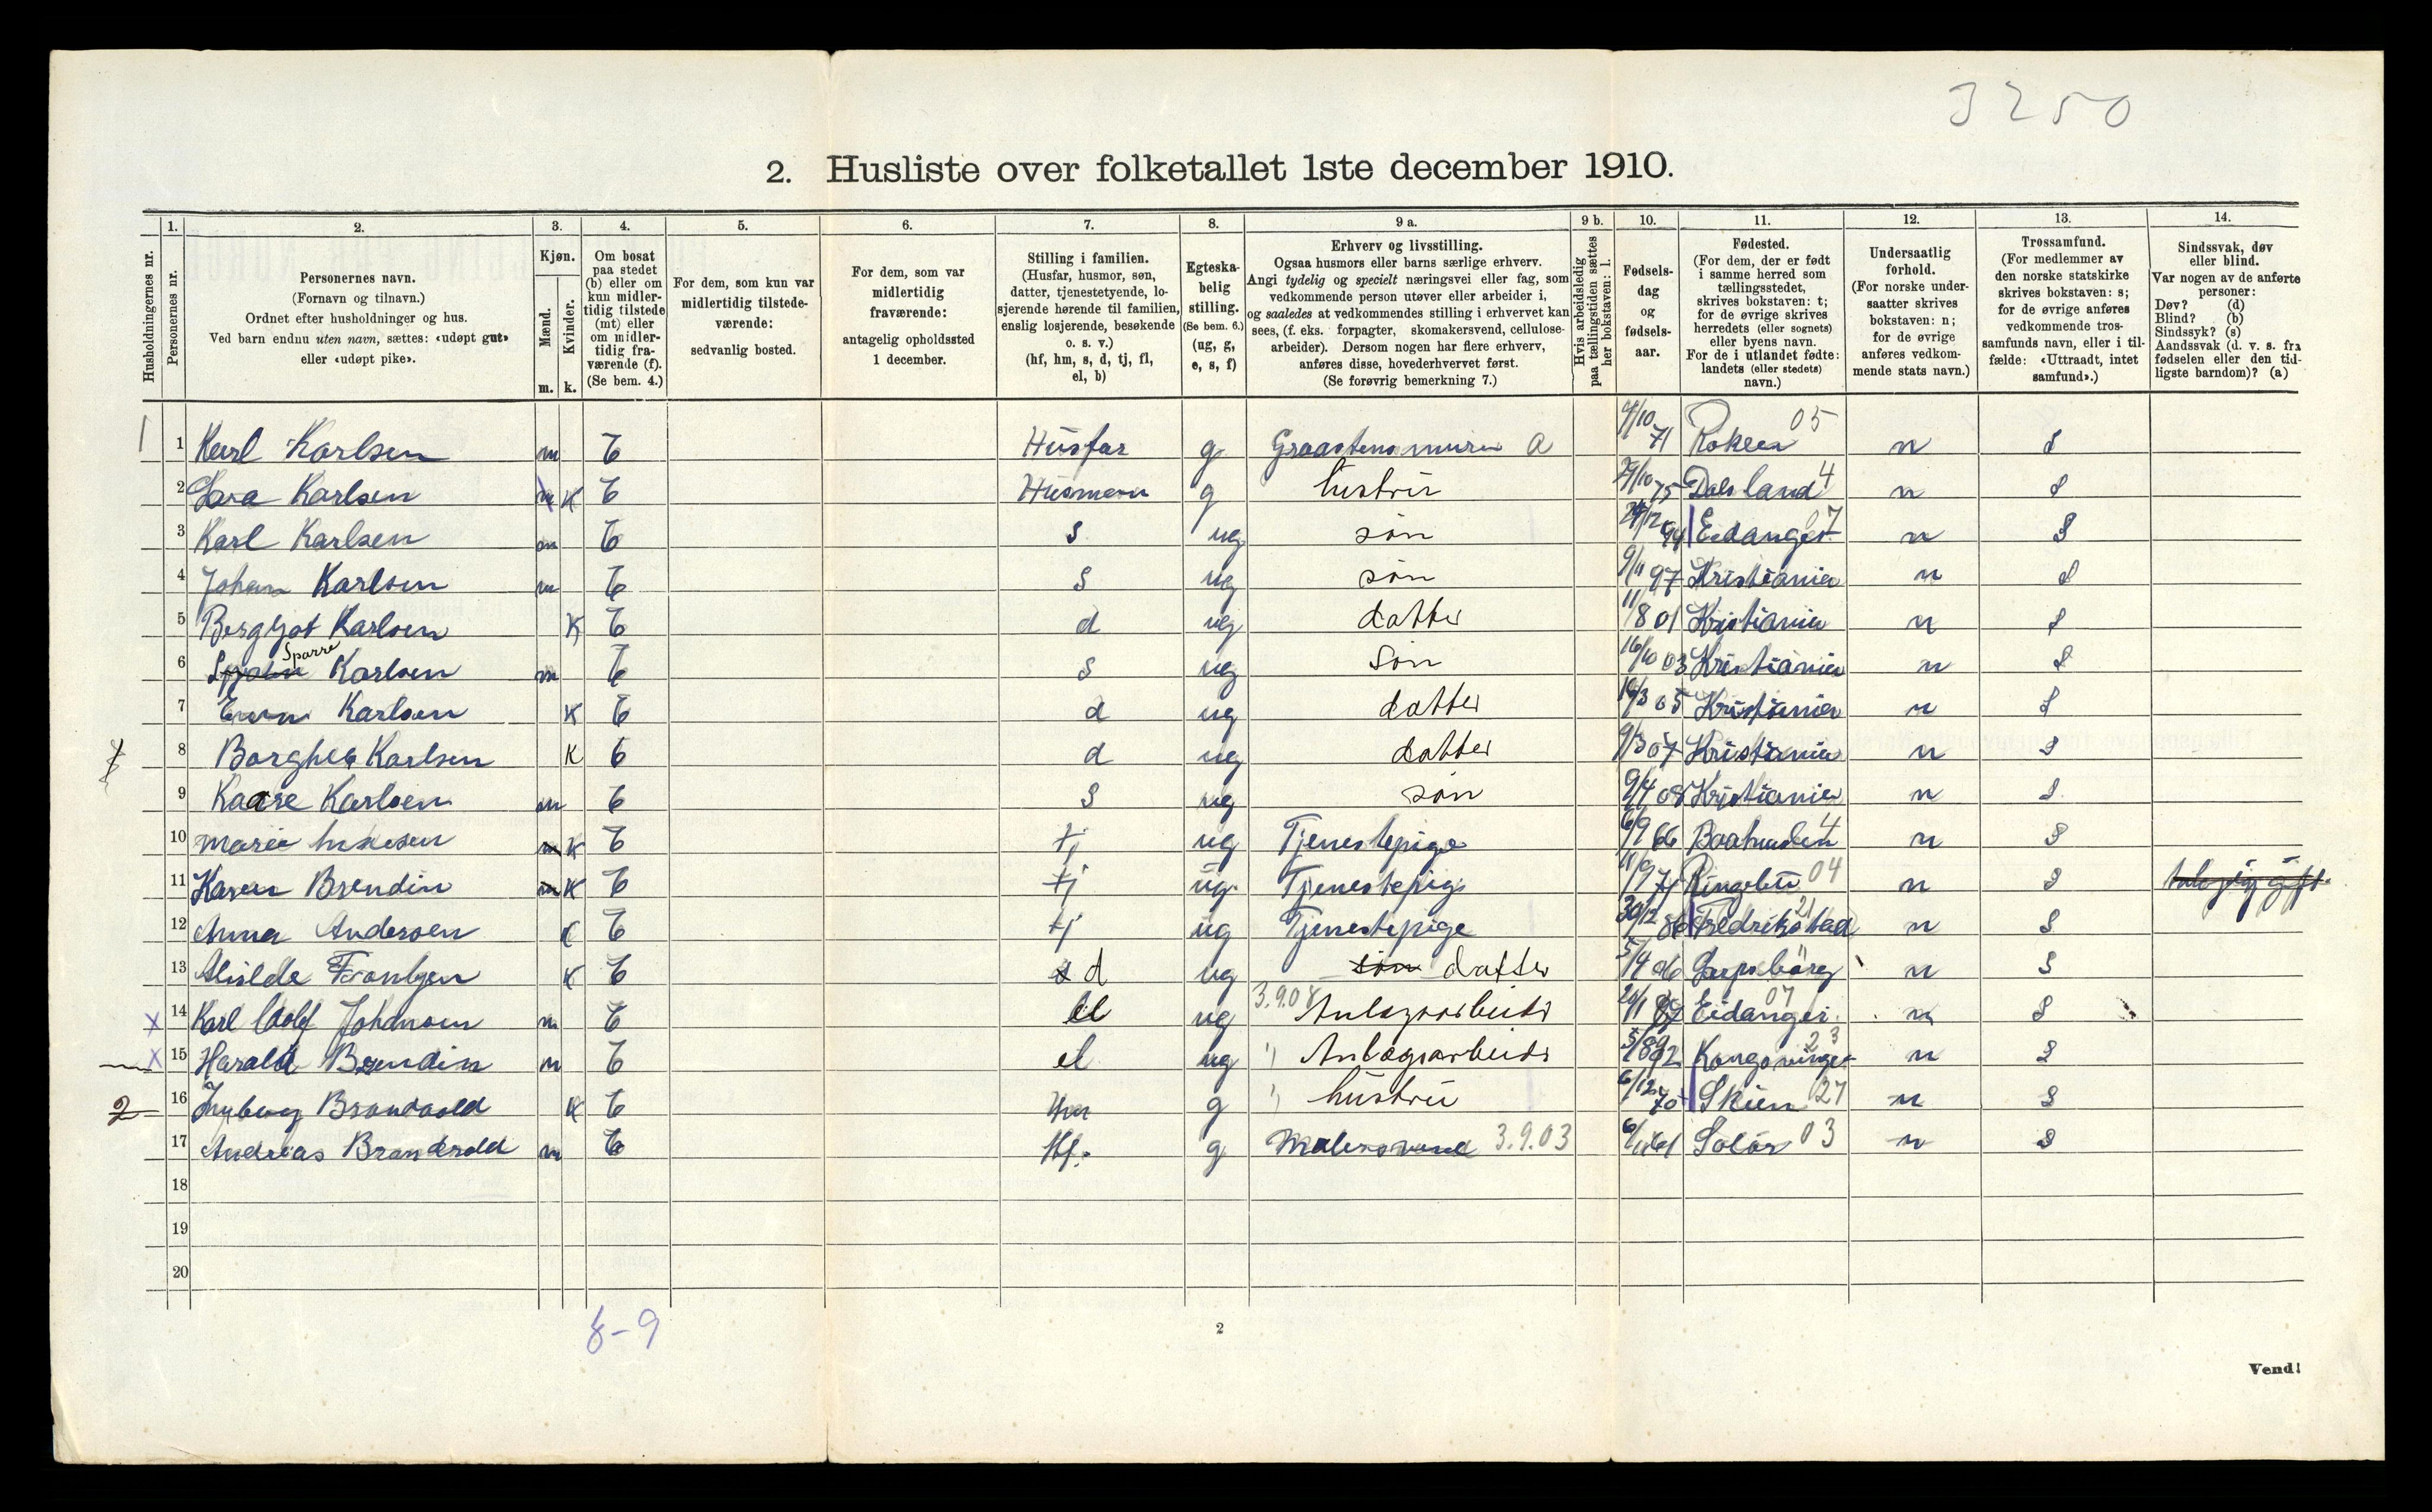 3250
2. Husliste over folketallet 1ste december 1910.
Husholdningernes nr.
1. Personernes nr.
2. Personernes navn. (Fornavn og tilnavn.) Ordnet efter husholdninger og hus. Ved barn endnu uten navn, sættes: «udøpt gut» eller «udøpt pike».
3. Kjøn. Mænd. m. Kvinder. k.
4. Om bosat paa stedet (b) eller om kun midlertidig tilstede (mt) eller om midlertidig fraværende (f). (Se bem. 4.)
5. For dem, som kun var midlertidig tilstedeværende: sedvanlig bosted.
6. For dem, som var midlertidig fraværende: antagelig opholdssted 1 december.
7. Stilling i familien. (Husfar, husmor, søn, datter, tjenestetyende, losjerende hørende til familien, enslig losjerende, besøkende o. s. v.) (hf, hm, s, d, tj, fl, el, b)
8. Egteskabelig stilling. (Se bem. 6.) (ug, g, e, s, f)
9 a. Erhverv og livsstilling. Ogsaa husmors eller barns særlige erhverv. Angi tydelig og specielt næringsvei eller fag, som vedkommende person utøver eller arbeider i, og saaledes at vedkommendes stilling i erhvervet kan sees, (f. eks. forpagter, skomakersvend, cellulosearbeider). Dersom nogen har flere erhverv, anføres disse, hovederhvervet først. (Se forøvrig bemerkning 7.)
9 b. Hvis arbeidsledig paa tællingstiden sættes her bokstaven: l.
10. Fødselsdag og fødselsaar.
11. Fødested. (For dem, der er født i samme herred som tællingsstedet, skrives bokstaven: t; for de øvrige skrives herredets (eller sognets) eller byens navn. For de i utlandet fødte: landets (eller stedets) navn.)
12. Undersaatlig forhold. (For norske undersaatter skrives bokstaven: n; for de øvrige anføres vedkommende stats navn.)
13. Trossamfund. (For medlemmer av den norske statskirke skrives bokstaven: s; for de øvrige anføres vedkommende trossamfunds navn, eller i tilfælde: «Uttraadt, intet samfund».)
14. Sindssvak, døv eller blind. Var nogen av de anførte personer: Døv? (d) Blind? (b) Sindssyk? (s) Aandssvak (d. v. s. fra fødselen eller den tidligste barndom)? (a)
1 1 Karl Karlsen m b Husfar g Graastensmurer a 71 Røken 05 n S
2 Lara Karlsen m K b g hustru 29/10 75 Dalsland 4 n S
3 Karl Karlsen m b S ug søn 94 Eidanger 07 n S
4 Johan Karlsen m b S ug søn 9/11 97 Kristiania n S
5 Bergljot Karlsen K b d ug datter 11/8 01 Kristiania n S
6 Sparre Karlsen m b S ug Søn 16/10 03 Kristiania n S
7 Karlsen K b d ug datter 05 Kristiania n S
8 Borghild Karlsen K b d ug datter 9/3 07 Kristiania n S
9 Kaare Karlsen m b S ug søn 9/4 08 Kristiania n S
10 Marie m K b tj ug Tjenestepige 6/9 66 4 n S
11 Karen Brendin m K b tj ug Tjenestepige Ringebu 04 n S
12 Anna Andersen K b tj ug Tjenestepige 30/12 86 Fredrikstad 21 n S
13 K b s d ug søn datter 06 Sarpsborg n S
14 Karl Adolf Johansen m b el ug 3.9.08 Anlegsarbeider 87 Eidanger 07 n S
15 Harald Brendin m b el ug " Anlegsarbeider Kongsvinger 23 n S
2 16 Ingborg Brandvold K b Hm g " hustru 6/12 70 Skien 27 n S
17 Andreas Brandvold m b Hf. g Malersvend 3.9.03 61 Solør 03 n S
18
19
20
8-9
2
Vend!